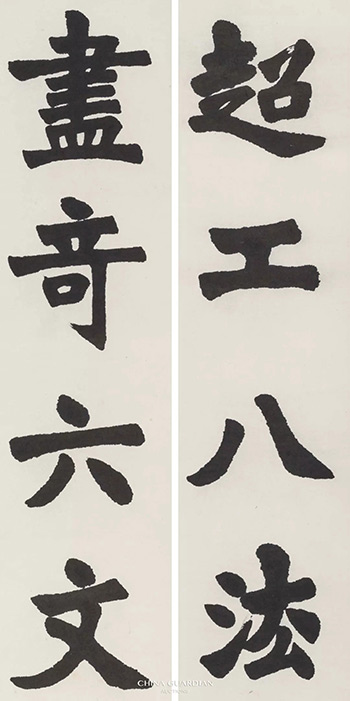 超工八法
盡竒六文
CHINA GUARDIAN